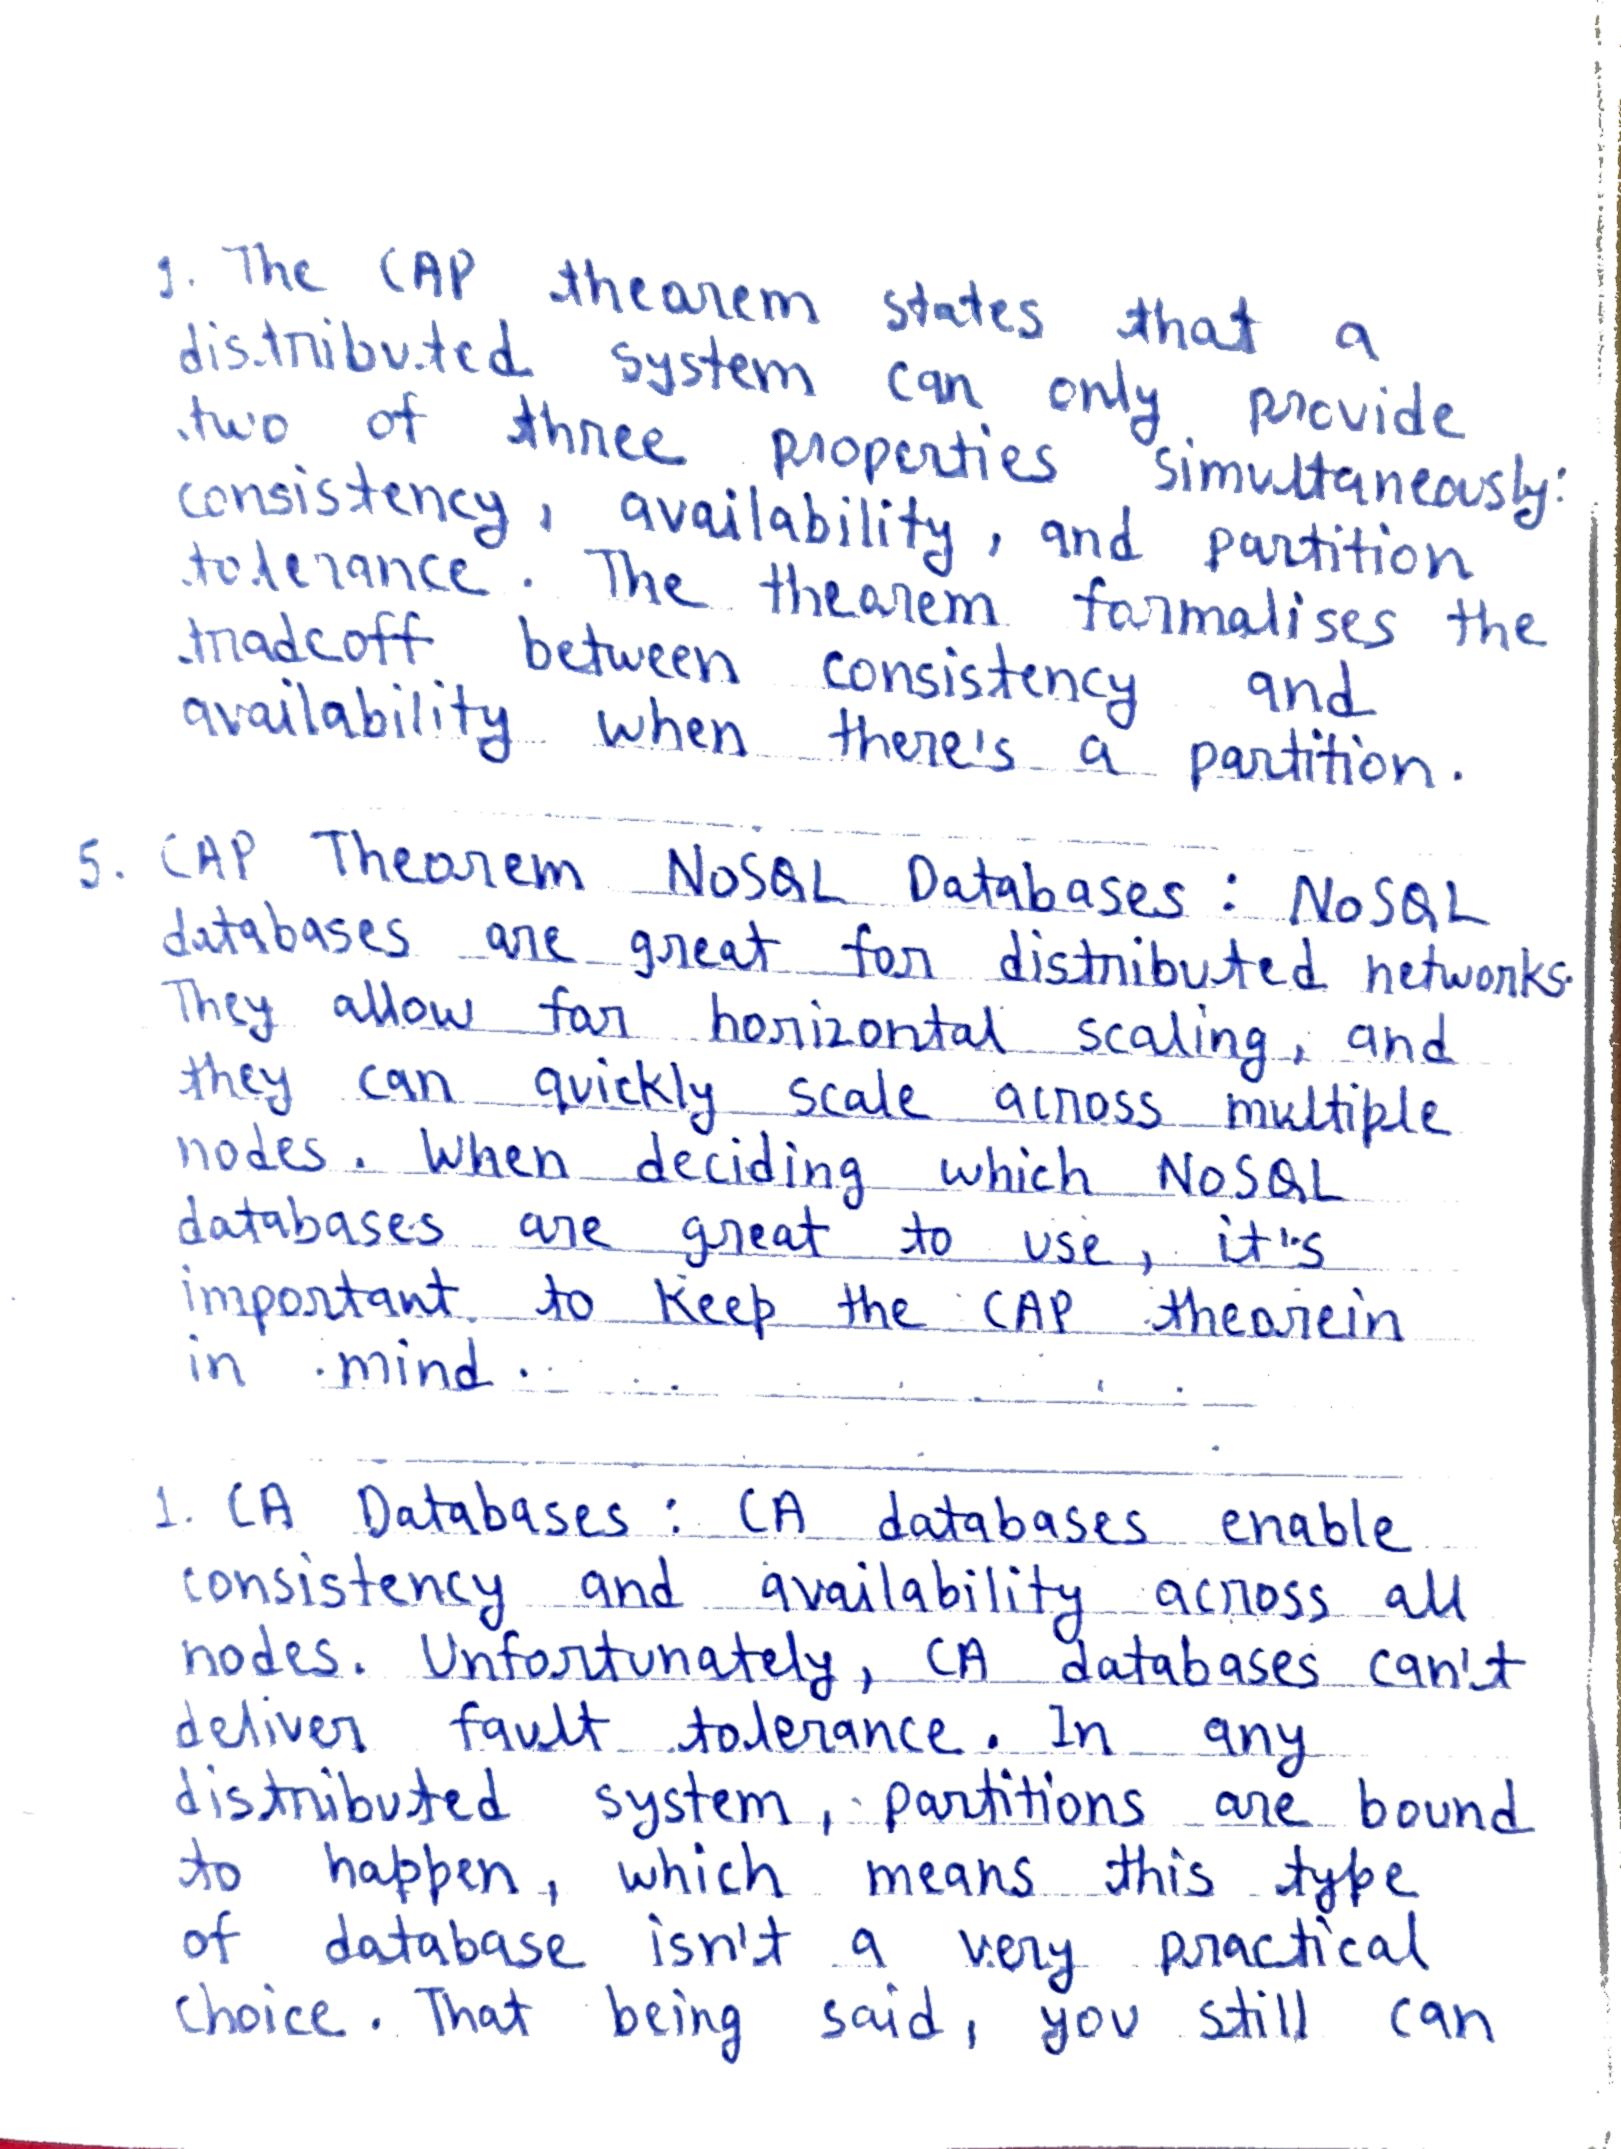 1. The CAP thearem states that a
distributed system can only provide
two of three properties simultaneously:
consistency, availability, and partition
tolerance. The thearem formalises the
tradeoff between consistency and
availability when there's a partition.
5. CAP Thearem NoSQL Databases : NoSQL
databases are great for distributed networks.
They allow for horizontal scaling, and
they can quickly scale across multiple
nodes. When deciding which NoSQL
databases are great to use, it's
important to keep the CAP thearein
in mind.
1. CA Databases : CA databases enable
consistency and availability across all
nodes. Unfortunately, CA databases can't
deliver fault tolerance. In any
distributed system, partitions are bound
to happen, which means this type
of database isn't a very practical
choice. That being said, you still can